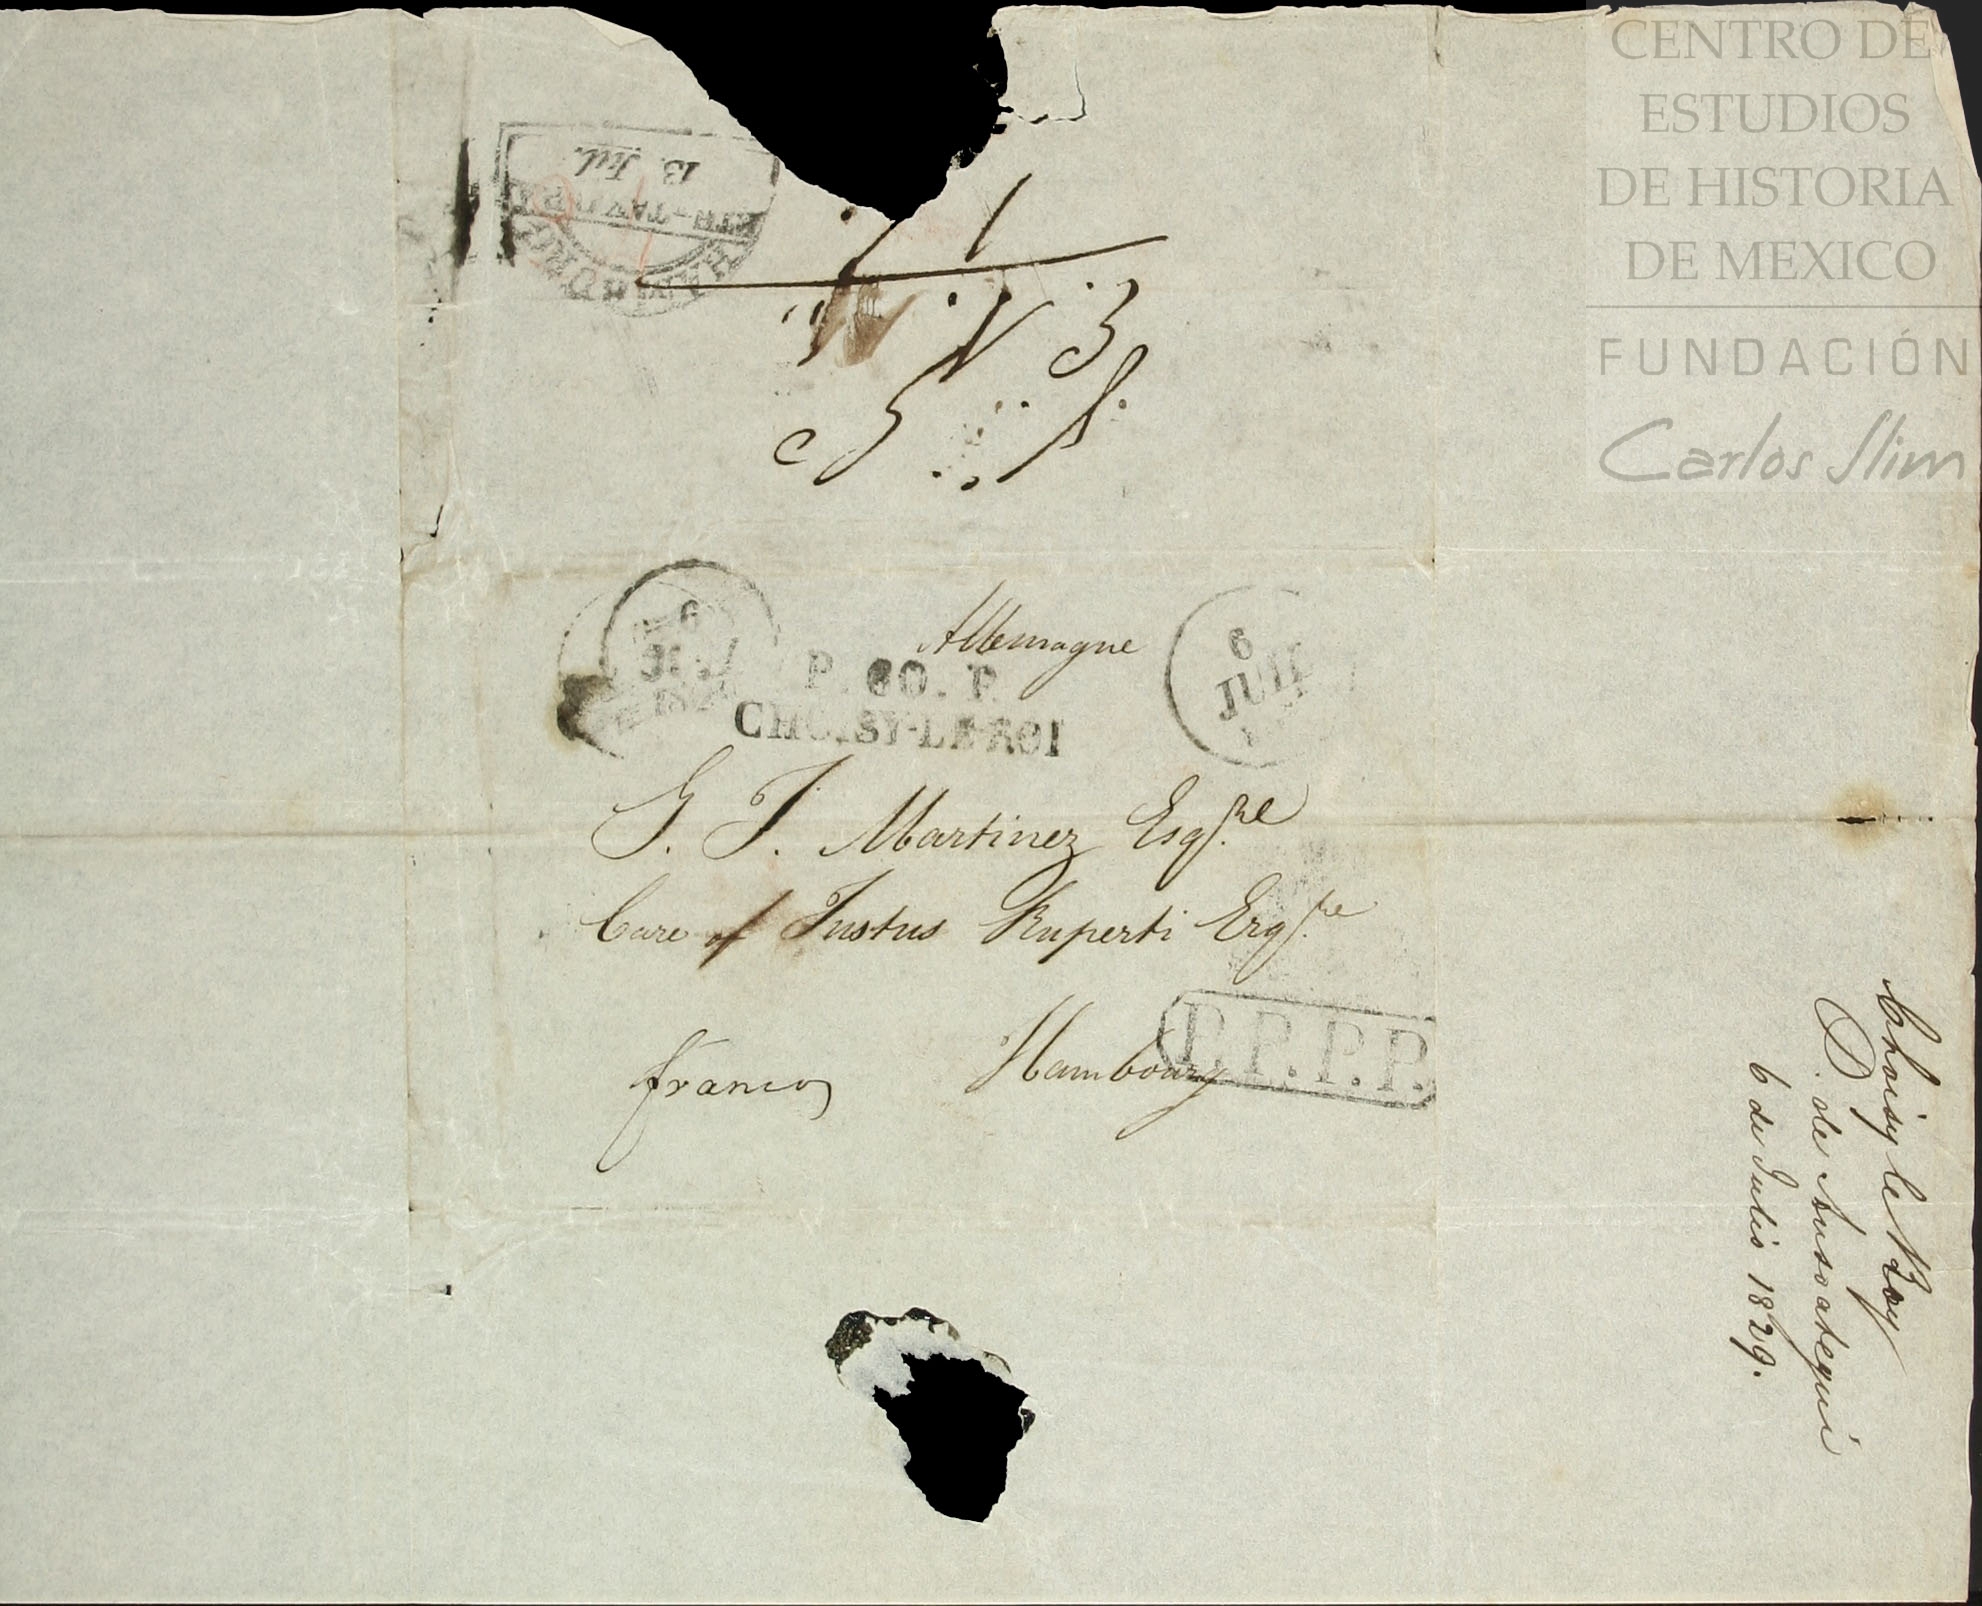 CENTRO DE
ESTUDIOS
DE HISTORIA
DE MEXICO
FUNDACIÓN
Carlos Slim
13. Jul.
Allemagne
6
6
JUIL
P. 60. P.
CHOISY-LE-ROI
G. J. Martinez Esq.re
Care of Justus Ruperti Esq.re
Hambourg
franco
P.P.P.P.
Choisy le Roy
D. de Ansoategui
6 de Julio 1829.